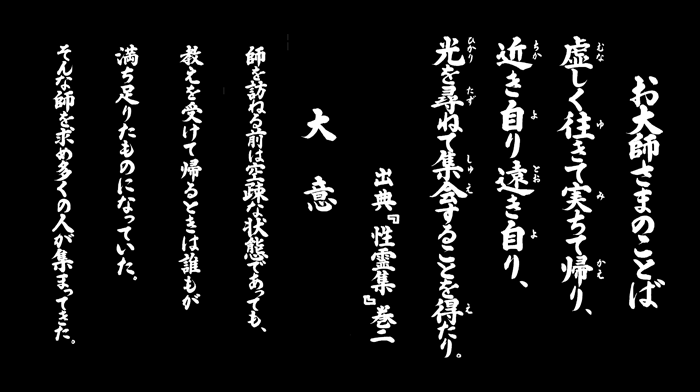 お大師さまのことば
虚しく往きて実ちて帰り、
近き自り遠き自り、
光を尋ねて集会することを得たり。
出典『性霊集』巻二
大意
師を訪ねる前は空疎な状態であっても、
教えを受けて帰るときは誰もが
満ち足りたものになっていた。
そんな師を求め多くの人が集まってきた。